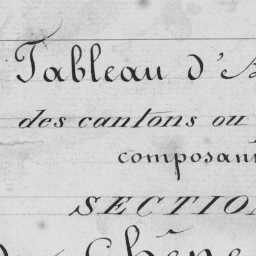 Tableau d'A
des cantons ou
composan
SECTIO
Chêne